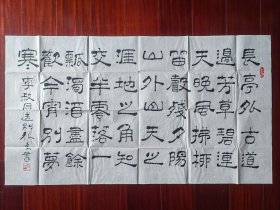 長亭外古道
邊芳草碧連
天晚風拂柳
笛聲殘夕陽
山外山天之
涯地之角知
交半零落一
瓢濁酒盡餘
歡今宵別夢
寒 李叔同送别